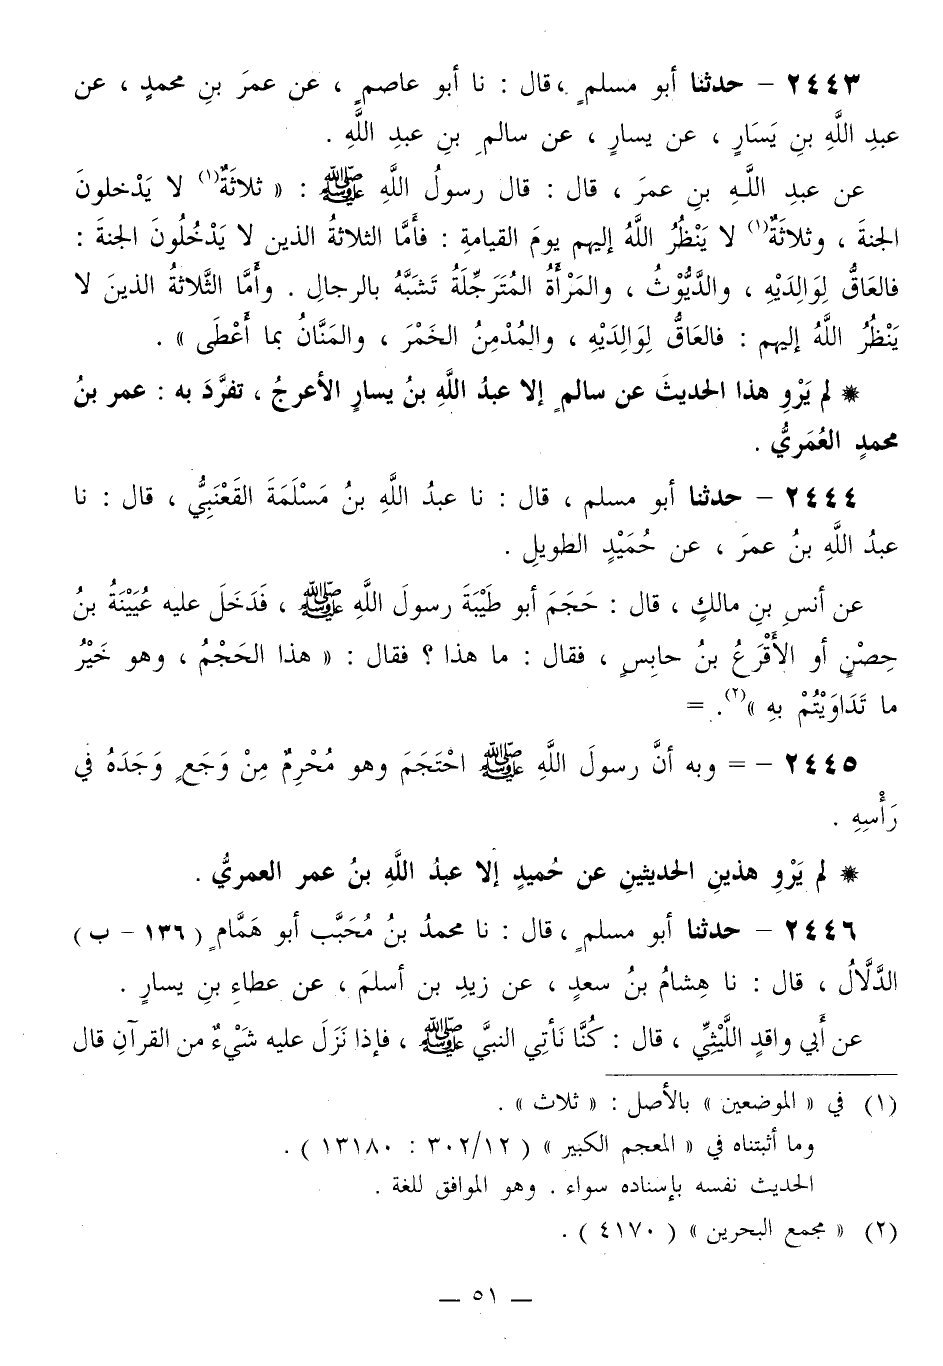 ٢٤٤٣ – حدثنا أبو مسلمٍ ، قال : نا أبو عاصمٍ ، عن عمرَ بنِ محمدٍ ، عن
عبدِ اللَّهِ بنِ يَسَارٍ ، عن يسارٍ ، عن سالمِ بنِ عبدِ اللَّهِ .
عن عبدِ اللَّهِ بنِ عمرَ ، قال : قال رسولُ اللَّهِ ﷺ : « ثلاثَةٌ(١) لا يَدْخلونَ
الجنةَ ، وثلاثَةٌ(١) لا يَنْظُرُ اللَّهُ إليهم يومَ القيامةِ : فأَمَّا الثلاثةُ الذين لا يَدْخُلُونَ الجنةَ :
فالعَاقُّ لِوَالِدَيْهِ ، والدَّيُّوْثُ ، والمَرْأَةُ المُتَرَجِّلَةُ تَشَبَّهُ بالرجالِ . وأَمَّا الثَّلاثةُ الذينَ لا
يَنْظُرُ اللَّهُ إليهم : فالعَاقُّ لِوَالِدَيْهِ ، والمُدْمِنُ الخَمْرَ ، والمَنَّانُ بما أَعْطَى » .
* لم يَرْوِ هذا الحديثَ عن سالمٍ إلا عبدُ اللَّهِ بنُ يسارٍ الأعرجُ ، تفرَّدَ به : عمر بنُ
محمدٍ العُمَريُّ .
٢٤٤٤ – حدثنا أبو مسلم ، قال : نا عبدُ اللَّهِ بنُ مَسْلَمَةَ القَعْنَبِيُّ ، قال : نا
عبدُ اللَّهِ بنُ عمرَ ، عن حُمَيْدٍ الطويلِ .
عن أنسِ بنِ مالكٍ ، قال : حَجَمَ أبو طَيْبَةَ رسولَ اللَّهِ ﷺ ، فَدَخَلَ عليه عُيَيْنَةُ بنُ
حِصْنٍ أو الأَقْرَعُ بنُ حابسٍ ، فقال : ما هذا ؟ فقال : « هذا الحَجْمُ ، وهو خَيْرُ
ما تَدَاوَيْتُمْ بهِ »(٢). =
٢٤٤٥ – = وبه أنَّ رسولَ اللَّهِ ﷺ احْتَجَمَ وهو مُحْرِمٌ مِنْ وَجَعٍ وَجَدَهُ في
رَأْسِهِ .
* لم يَرْوِ هذينِ الحديثينِ عن حُميدٍ إلا عبدُ اللَّهِ بنُ عمر العمريُّ .
٢٤٤٦ – حدثنا أبو مسلمٍ ، قال : نا محمدُ بنُ مُحَبَّب أبو هَمَّامٍ ( ١٣٦ – ب )
الدَّلَّالُ ، قال : نا هِشامُ بنُ سعدٍ ، عن زيدِ بن أسلمَ ، عن عطاءِ بنِ يسارٍ .
عن أَبي واقدٍ اللَّيْثِيِّ ، قال : كُنَّا نَأتي النبيَّ ﷺ ، فإذا نَزَلَ عليه شَيْءٌ من القرآنِ قال
(١) في « الموضعين » بالأصل : « ثلاث » .
وما أثبتناه في « المعجم الكبير » ( ٣٠٢/١٢ : ١٣١٨٠ ) .
الحديث نفسه بإسناده سواء . وهو الموافق للغة .
(٢) « مجمع البحرين » ( ٤١٧٠ ) .
— ٥١ —